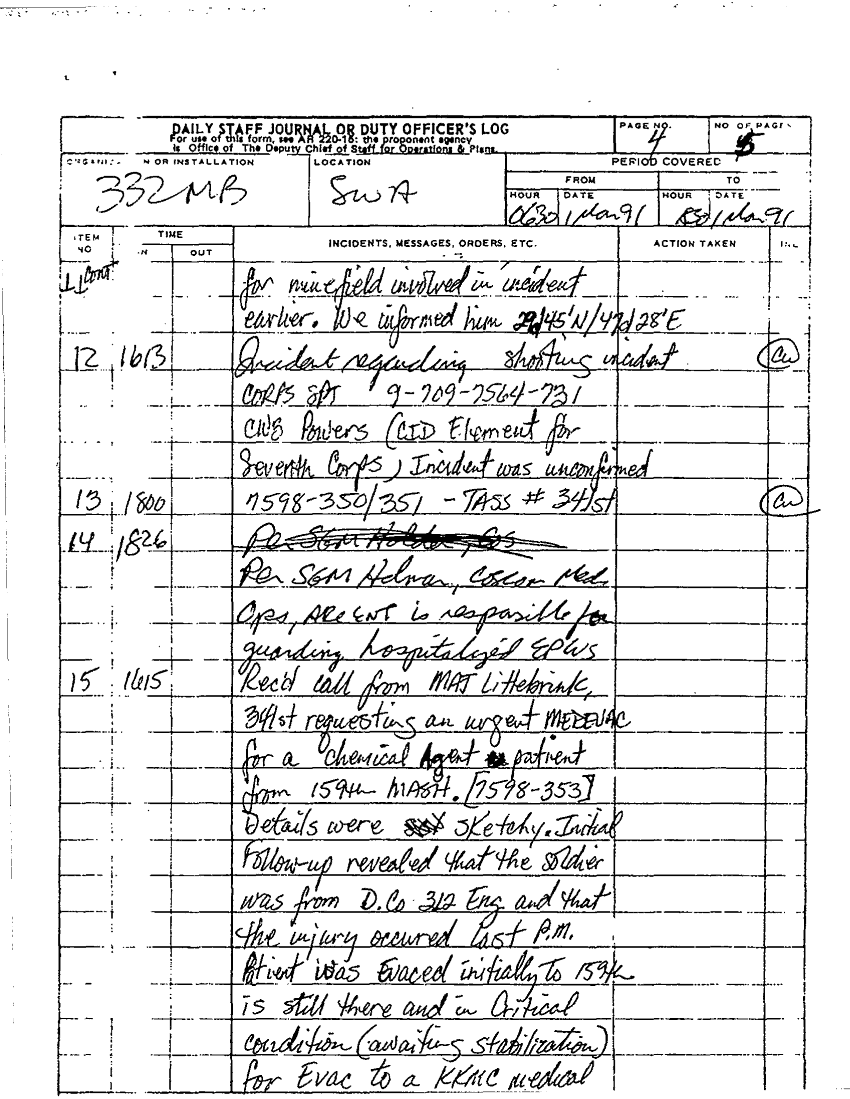 DAILY STAFF JOURNAL OR DUTY OFFICER'S LOG
For use of this form, see AR 220-15: the proponent agency
is Office of The Deputy Chief of Staff for Operations & Plans.
PAGE NO.
4
NO OF PAGES
5
N OR INSTALLATION
332MB
LOCATION
SWA
PERIOD COVERED
FROM
TO
HOUR DATE HOUR DATE
0630 1 Mar 91 1 Mar 91
ITEM NO
TIME
IN OUT
INCIDENTS, MESSAGES, ORDERS, ETC.
ACTION TAKEN
11 cont for minefield involved in incident
earlier. We informed him 29d45'N/47d28'E
12 1613 Incident regarding shooting incident
CORPS SPT 9-709-7564-731
Powers (CID Element for
Seventh Corps) Incident was unconfirmed
13 1800 7598-350/351 - TASS # 341st
14 1826
Per SGM Holman, Coscom Med
Ops, ARCENT is responsible for
guarding hospitalized EPWs
15 1615 Rec'd call from MAJ Littebrink,
341st requesting an urgent MEDEVAC
for a Chemical Agent patient
from 159th MASH. [7598-353]
Details were sketchy. Initial
Follow-up revealed that the soldier
was from D.Co 312 Eng and that
the injury occured last P.M.
Patient was Evaced initially to 159th
is still there and in Critical
condition (awaiting stabilization)
for Evac to a KKMC medical